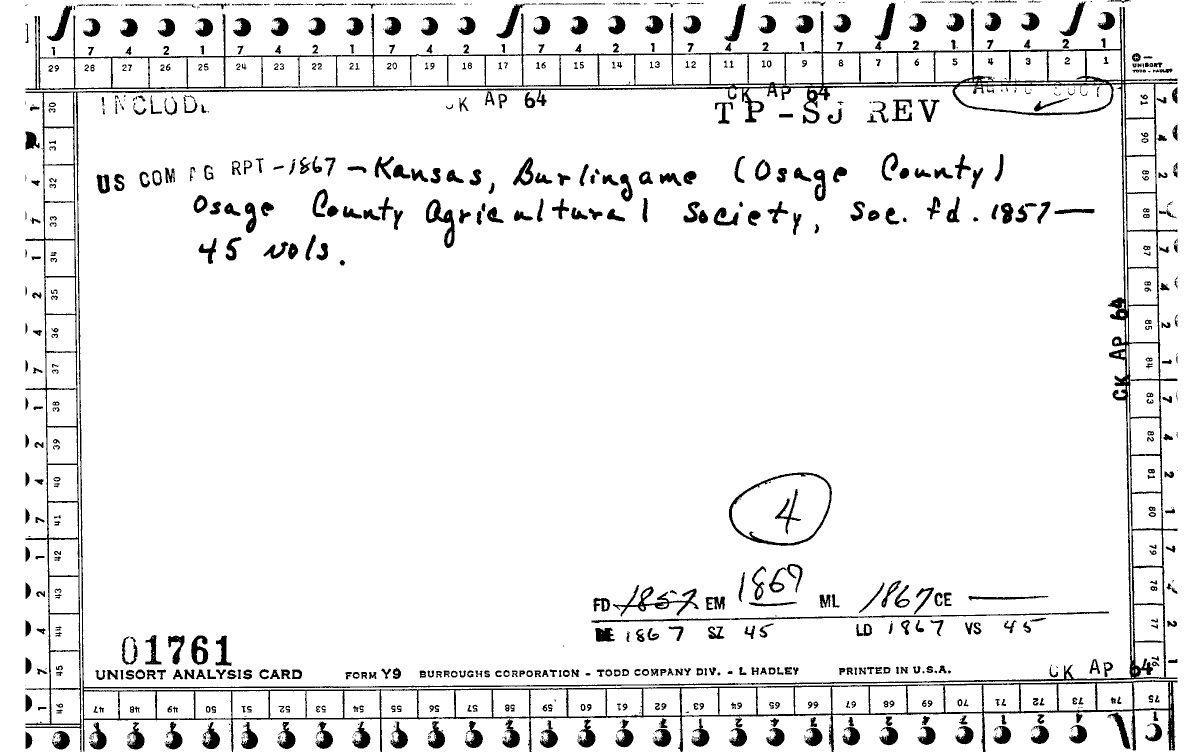 7 4 2 1 7 4 2 1 7 4 2 1 7 4 2 1 7 4 2 1 7 4 2 1 7 4 2 1
29 28 27 26 25 24 23 22 21 20 19 18 17 16 15 14 13 12 11 10 9 8 7 6 5 4 3 2 1
UNISORT
CK AP 64 CK AP 64
TP-SJ REV
US COM AG RPT-1867 - Kansas, Burlingame (Osage County)
Osage County Agricultural Society, Soc. fd. 1857—
45 vols.
CK AP 64
4
FD 1857 EM 1867 ML 1867 CE —
1867 SZ 45 LD 1867 VS 45
01761
UNISORT ANALYSIS CARD FORM Y9 BURROUGHS CORPORATION - TODD COMPANY DIV. - L HADLEY PRINTED IN U.S.A.
CK AP 64
46 47 48 49 50 51 52 53 54 55 56 57 58 59 60 61 62 63 64 65 66 67 68 69 70 71 72 73 74 75